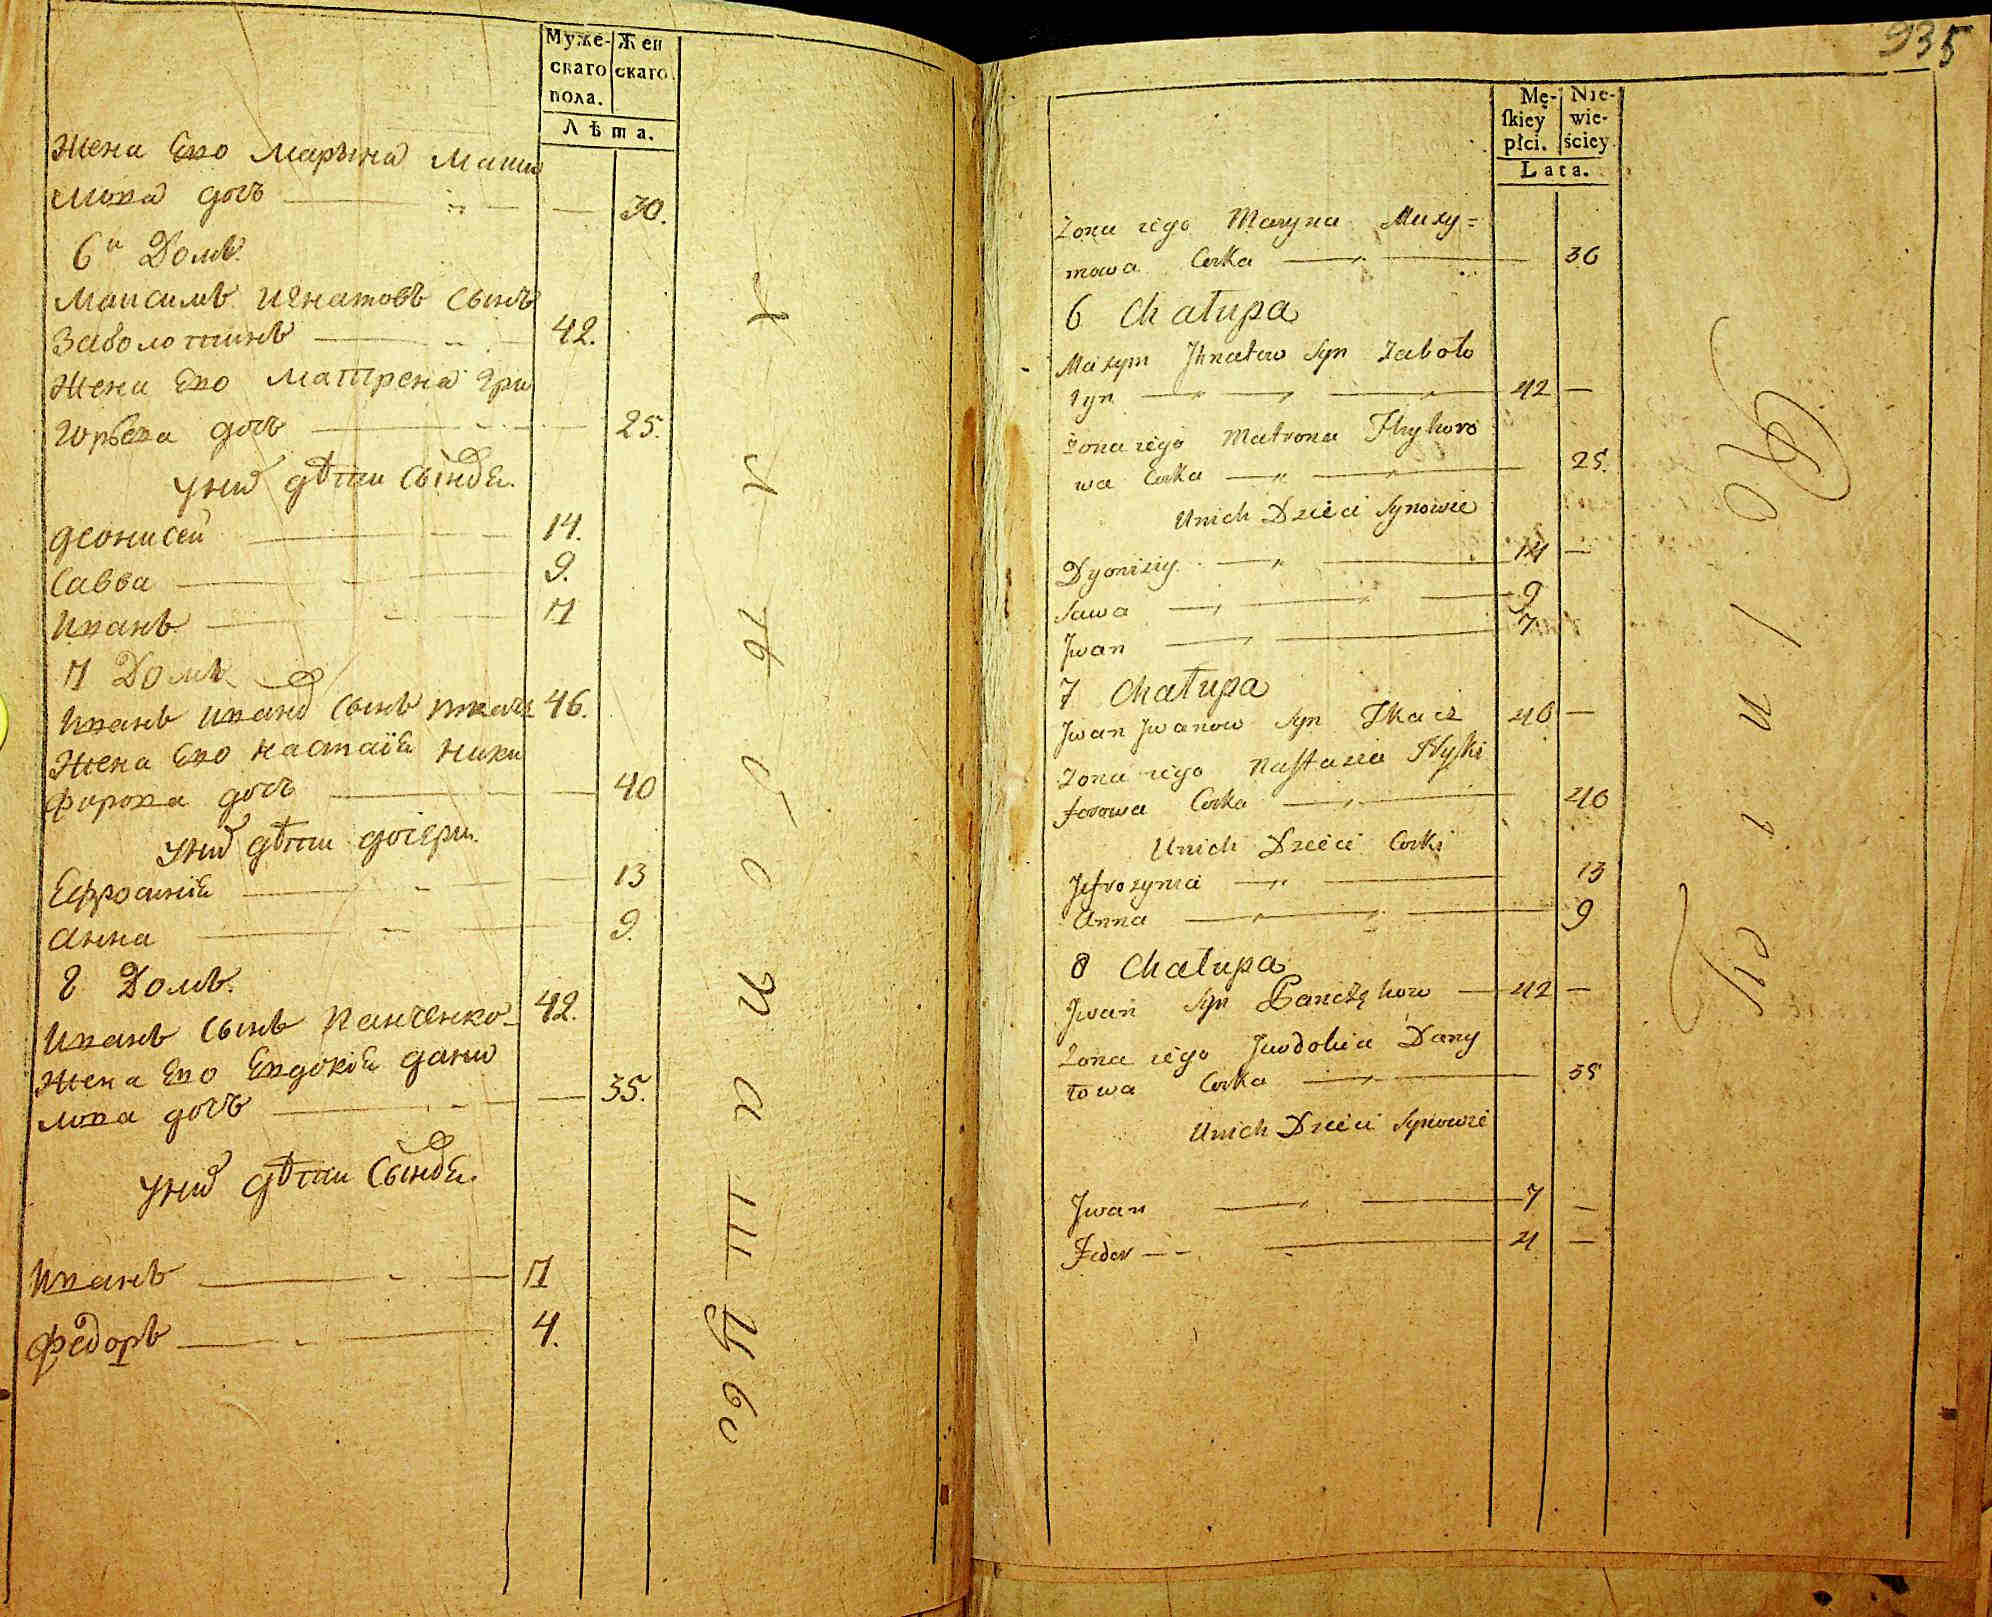 Муже-
скаго
пола.
Жен
скаго.
Лѣта.
Жена Его Марына Макси
мова дочь 30.
6й Домъ.
Максимъ Игнатовъ Сынъ
Заболотинъ 42.
Жена Его Матрена Гри
горьева дочь 25.
У них дѣти Сыновья.
Деонисей 14.
Савва 9.
Иванъ 7
7 Домъ
Иванъ Иванов Сынъ Ткачь 46.
Жена Его Настасія Ники
форова дочь 40
У них дѣти дочери.
Ефросинія 13
Анна 9.
8 Домъ.
Иванъ Сынъ Панченко 42.
Жена Его Евдокія Дани
лова дочь 35.
У них дѣти Сыновья.
Иванъ 7
Федоръ 4.
935
Mę-
skiey
płci.
Nie-
wie-
ściey.
Lata.
Żona iego Maryna Maxy=
mowa Corka 30
6 Chałupa
Maxym Ihnatow Syn Zaboło
tyn 42 —
Żona iego Matrona Hryhoro
wa Corka 25.
Unich Dzieci Synowie
Dyoniziy 14 —
Sawa 9
Jwan 7
7 Chałupa
Jwan Jwanow Syn Tkacz 46 —
Żona iego Nastazia Nyki
forowa Corka 40
Unich Dzieci Corki
Jefrozynia 13
Anna 9
8 Chałupa
Jwan Syn Panczęków 42 —
Żona iego Jewdokia Dany
łowa Corka 35
Unich Dzieci Synowie
Jwan 7 —
Fedor 4 —